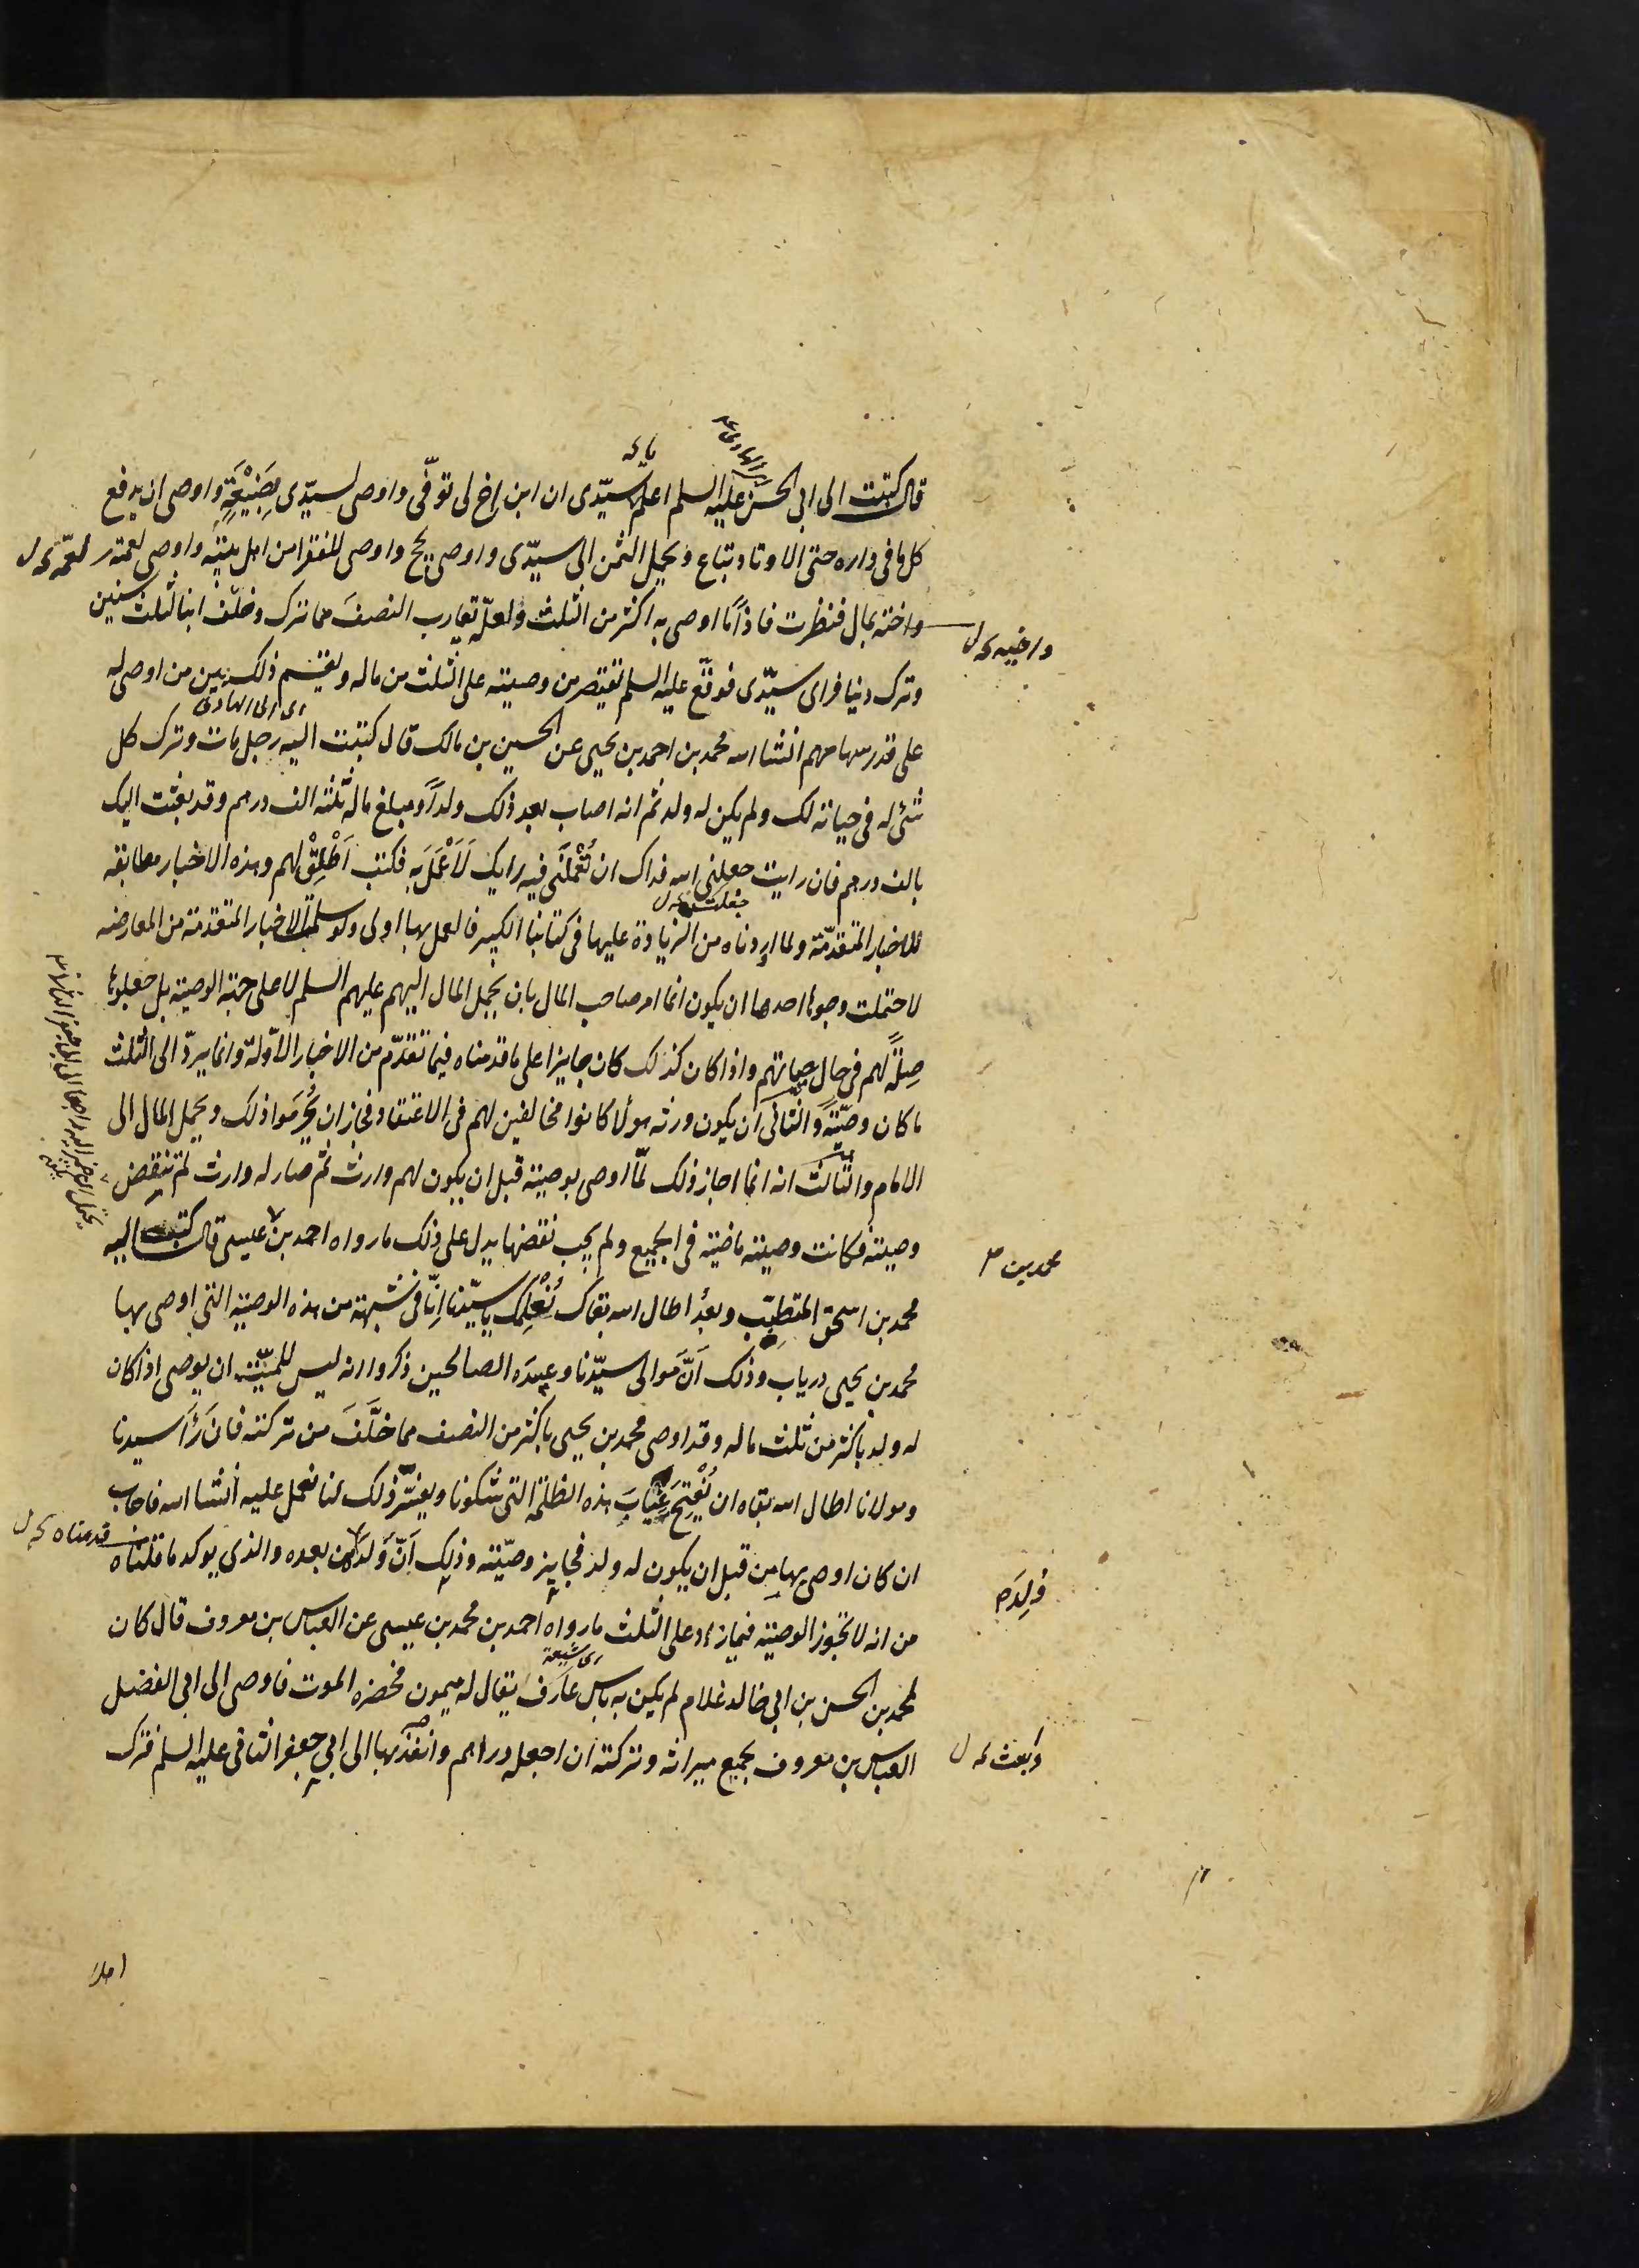 قال كتبت الى ابى الحسن عليه السلم اعلم سيّدى ان ابن اخ لى توفّى واوصى لسيّدى بِضَيْعَةٍ واوصى ان يدفع
كل ما فى داره حتى الاوتاد تباع ويحمل الثمن الى سيّدى واوصى بحج واوصى للفقرا من اهل بيته واوصى لعمته
واخته بمال فنظرت فاذاً ما اوصى به اكثر من الثلث ولعلّه يقارب النصفَ مما ترك وخلّف ابنا لثلث سنين
وترك دينا فراى سيّدى فوقّع عليه السلم يقتصر من وصيته على الثلث من ماله ويقسم ذلك بين من اوصى له
على قدر سهامهم انشا اسه محمد بن احمد بن يحيى عن الحسين بن مالك قال كتبت اليه رجل مات وترك كل
شئ له فى حياته لك ولم يكن له ولد ثم انه اصاب بعد ذلك ولداً ومبلغ ماله ثلثة الف درهم وقد بعثت اليك
بالف درهم فان رايت جعلنى اسه فداك ان تُعْلمَنى فيه رايك لَاَعْمَلَ به فكتب اَطْلِقْ لهم وهذه الاخبار مطابقه
للاخبار المتقدّمة ولما اوردناه من الزيادة عليها فى كتابنا الكبير فالعمل بها اولى ولو سلمت الاخبار المتقدمة من المعارضه
لاحتملت وجوها احدها ان يكون انما امر صاحب المال بان يحمل المال اليهم عليهم السلم لا على جهة الوصية بل جعلوها
صِلةً لهم فى حال حياتهم واذا كان كذلك كان جايزا على ما قدمناه فيما تقدّم من الاخبار الاوّلة وانما يردّ الى الثلث
ما كان وصيّةً والثانى ان يكون ورثه هولا كانوا مخالفين لهم فى الاعتقاد فجاز ان يُحرَموا ذلك ويحمل المال الى
الامام والثالث انه انما اجاز ذلك لمّا اوصى بوصية قبل ان يكون لهم وارث ثم صار له وارث لم تنقض
وصيته فكانت وصيته ماضية فى الجميع ولم يجب نقضها يدل على ذلك ما رواه احمد بن عيسى قال كتبت اليه
محمد بن اسحق المتطبّب وبعدُ اطال اسه بقاك نُعْلِمُك يا سيّدنا اِنّا فى شبهة من هذه الوصية التى اوصى بها
محمد بن يحيى درياب وذلك اَنَّ مَوالى سيّدنا وعبيدَه الصالحين ذكروا انه ليس للميّت ان يوصى اذا كان
له ولد باكثر من ثلث ماله وقد اوصى محمد بن يحيى باكثر من النصف مما خلَّفَ من تركته فان رَأَ سيدنا
ومولانا اطال اسه بقاه ان يُفْتِحَ غيابَ هذه الظلمة التى شكونا ويفسّر ذلك لنا نعمل عليه انشا اسه فاجاب
ان كان اوصى بها من قبل ان يكون له ولد فجايز وصيّته وذلك اَنّ ولَدَه من بعده والذى يوكد ما قلناه
من انه لا تجوز الوصية فيما زاد على الثلث ما رواه احمد بن محمد بن عيسى عن العباس بن معروف قال كان
لمحمد بن الحسن بن ابى خالد غلام لم يكن به باس عارف يقال له ميمون فحضره الموت فاوصى الى ابى الفضل
العباس بن معروف بجميع ميراثه وتركته ان اجعله دراهم وانفذ بها الى ابى جعفر الثانى عليه السلم فترك